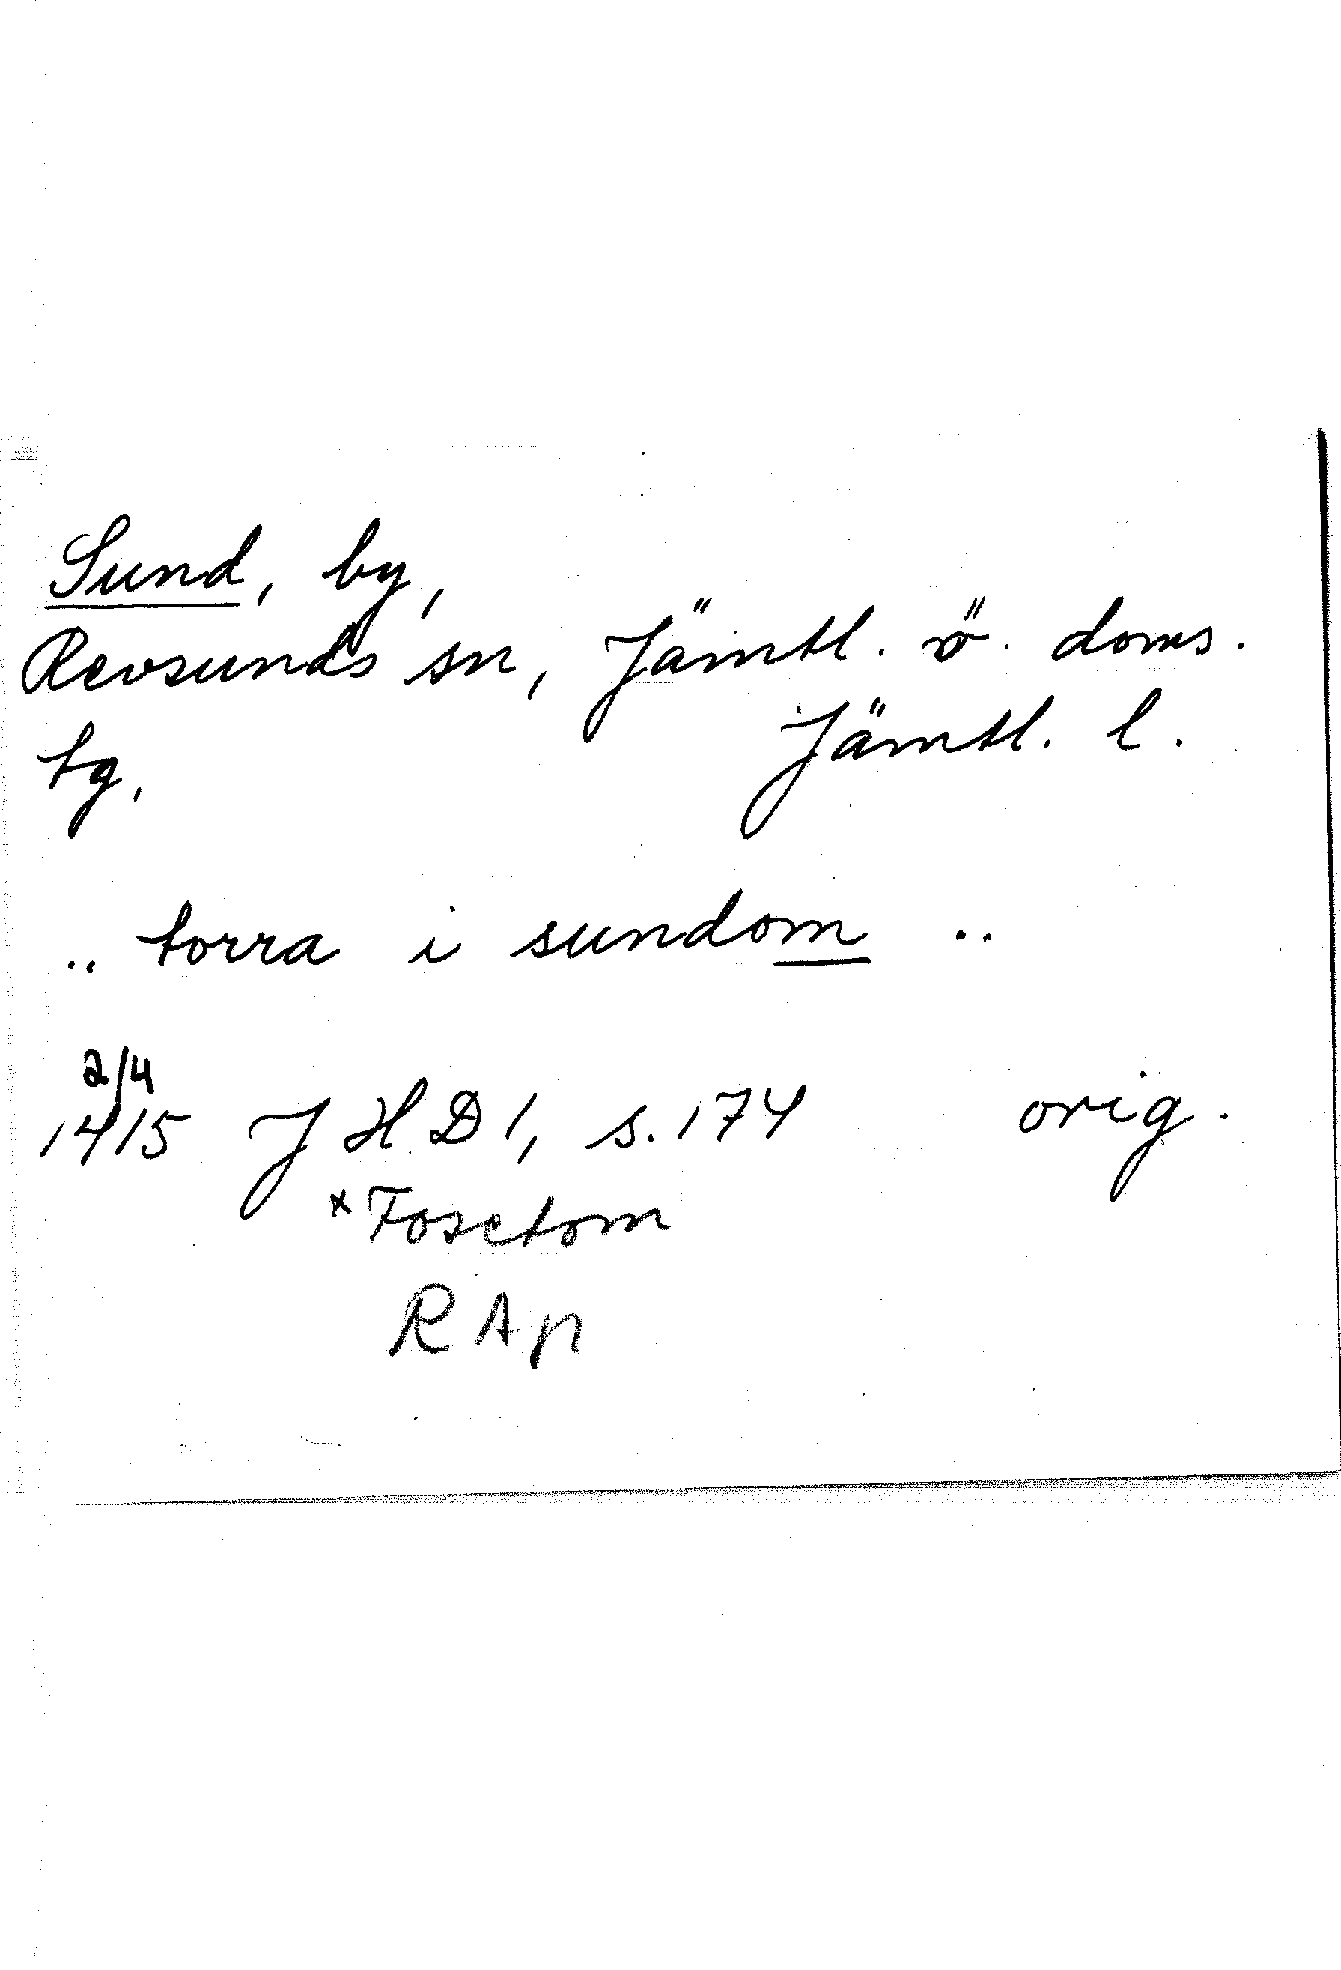 Sund, by,
Revsunds sn, Jämtl. ö. doms.
tg, Jämtl. l.
.. torra i sundom ..
2/4
1415 J H D 1, s. 174 orig.
x Fosetom
R A p